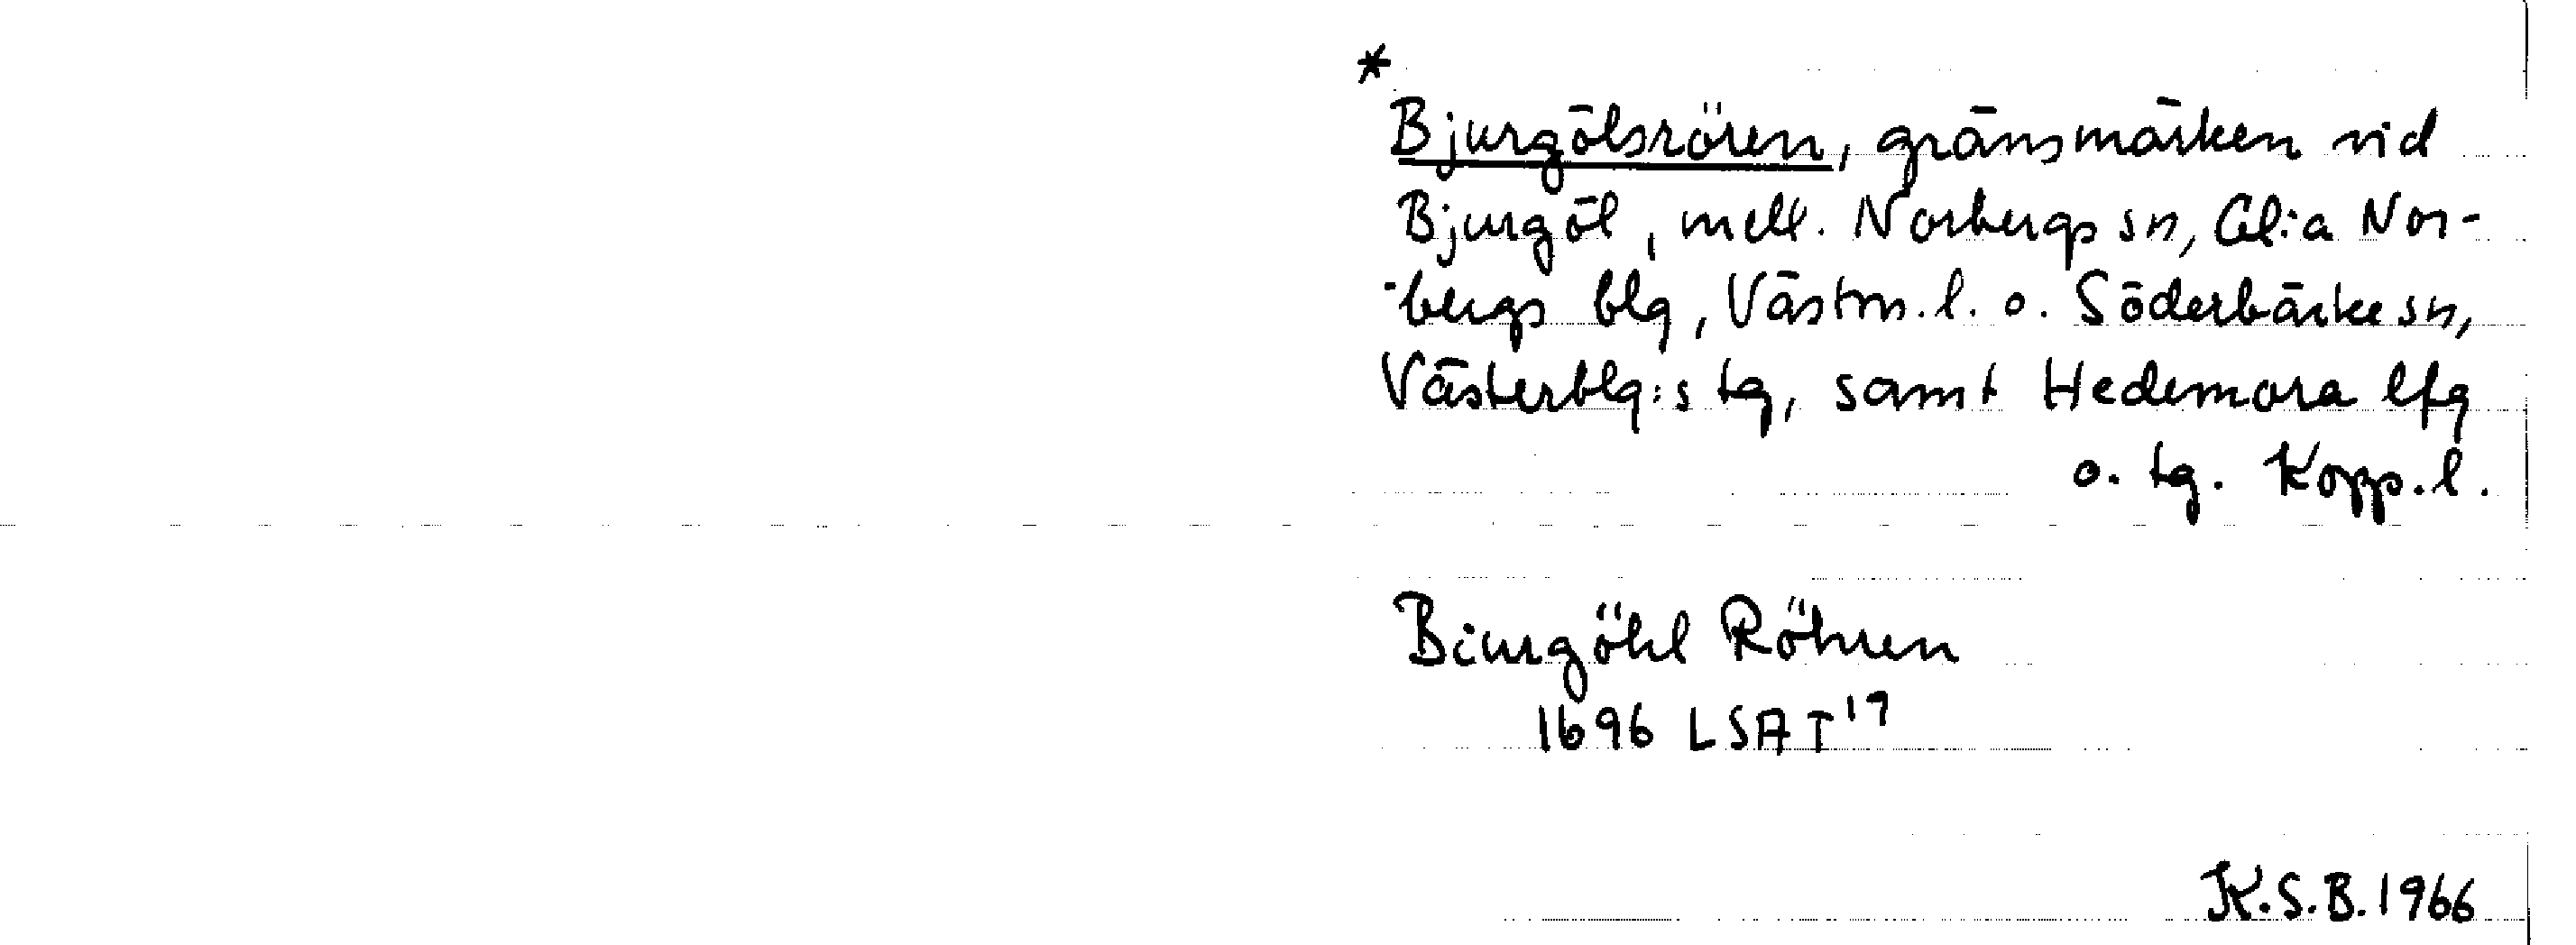 *
Bjurgölsrören, gränsmärken vid
Bjurgöl, mell. Norbergs sn, Gl:a Nor-
-bergs blg, Västm.l. o. Söderbärke sn,
Västerblg:s tg, samt Hedemora lfg
o. tg. Kopp.l.
Biurgöhl Röhren
1696 LSA T 17
K.S.B. 1966